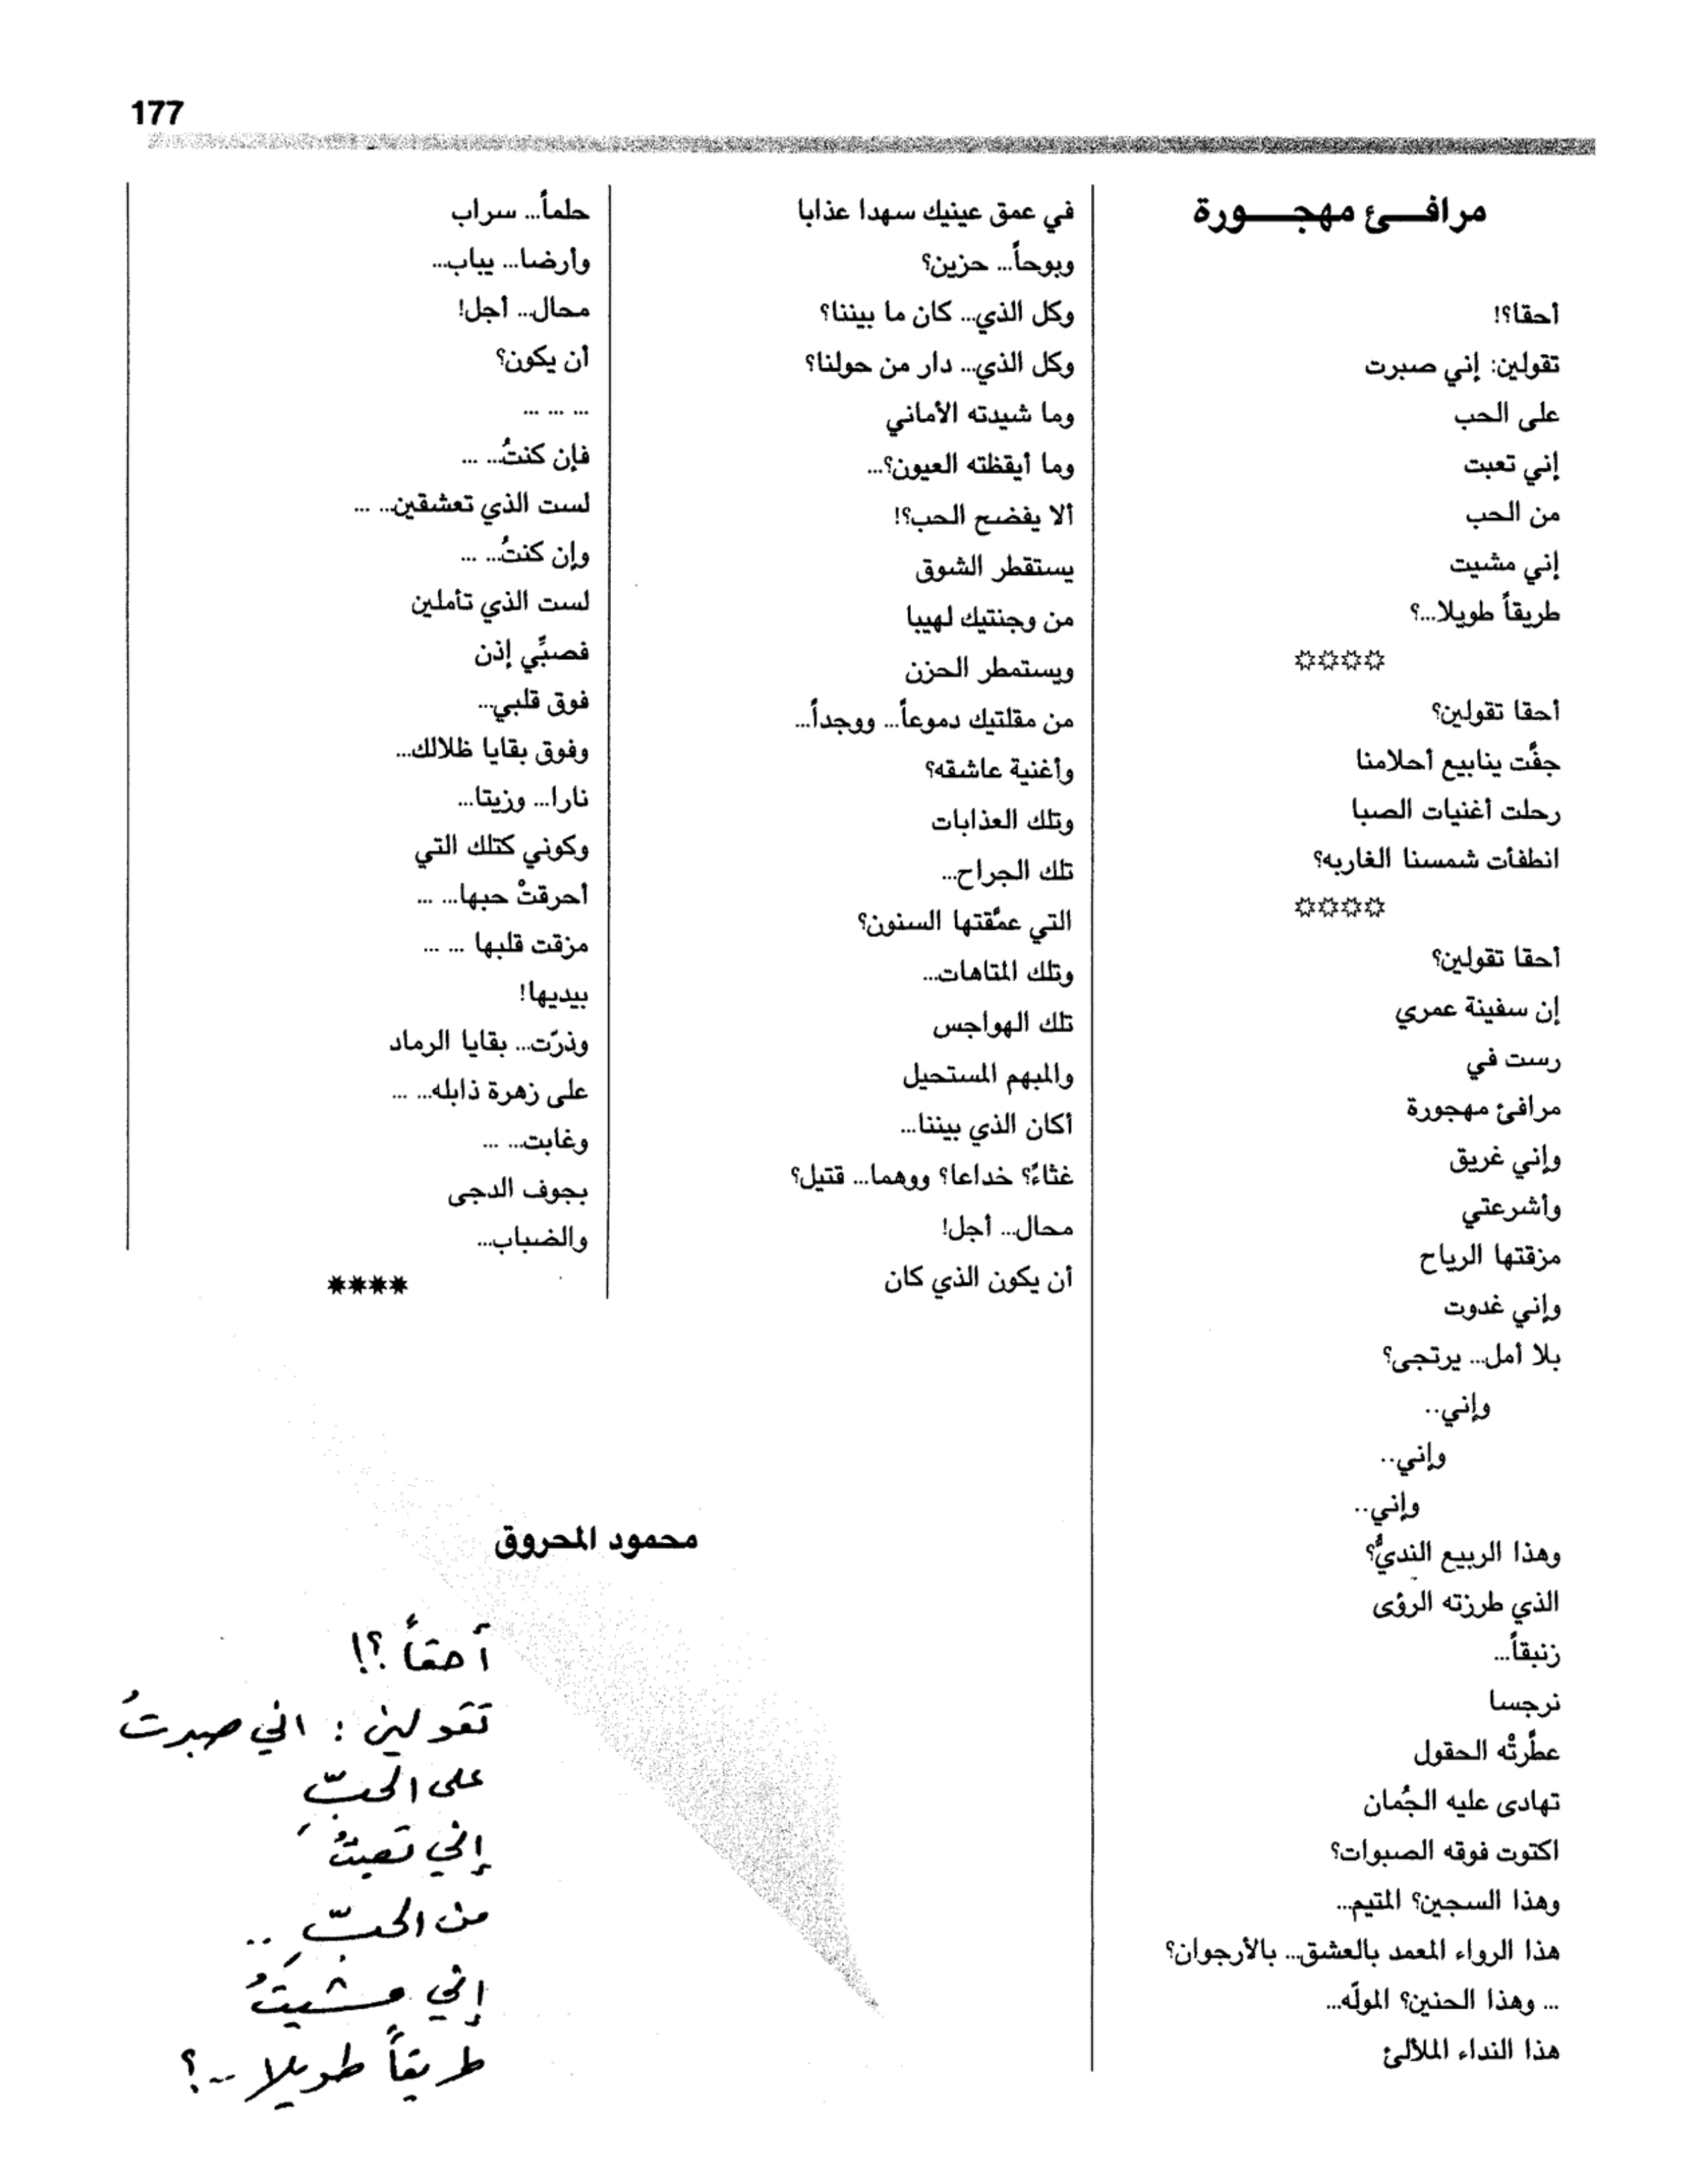 177
مرافئ مهجورة
أحقا؟!
تقولين: إني صبرت
على الحب
إني تعبت
من الحب
إني مشيت
طريقاً طويلا...؟
☼☼☼☼
أحقا تقولين؟
جفَّت ينابيع أحلامنا
رحلت أغنيات الصبا
انطفأت شمسنا الغاربه؟
☼☼☼☼
أحقا تقولين؟
إن سفينة عمري
رست في
مرافئ مهجورة
وإني غريق
وأشرعتي
مزقتها الرياح
وإني غدوت
بلا أمل... يرتجى؟
وإني..
وإني..
وإني..
وهذا الربيع النديُّ؟
الذي طرزته الرؤى
زنبقاً...
نرجسا
عطَّرتْه الحقول
تهادى عليه الجُمان
اكتوت فوقه الصبوات؟
وهذا السجين؟ المتيم...
هذا الرواء المعمد بالعشق... بالأرجوان؟
... وهذا الحنين؟ المولّه...
هذا النداء الملألئ
في عمق عينيك سهدا عذابا
وبوحاً... حزين؟
وكل الذي... كان ما بيننا؟
وكل الذي... دار من حولنا؟
وما شيدته الأماني
وما أيقظته العيون؟...
ألا يفضح الحب؟!
يستقطر الشوق
من وجنتيك لهيبا
ويستمطر الحزن
من مقلتيك دموعاً... ووجداً...
وأغنية عاشقه؟
وتلك العذابات
تلك الجراح...
التي عمَّقتها السنون؟
وتلك المتاهات...
تلك الهواجس
والمبهم المستحيل
أكان الذي بيننا...
غثاءً؟ خداعا؟ ووهما... قتيل؟
محال... أجل!
أن يكون الذي كان
حلماً... سراب
وأرضا... يباب...
محال... أجل!
أن يكون؟
... ... ...
فإن كنتُ... ...
لست الذي تعشقين... ...
وإن كنتُ... ...
لست الذي تأملين
فصبِّي إذن
فوق قلبي...
وفوق بقايا ظلالك...
نارا... وزيتا...
وكوني كتلك التي
أحرقتْ حبها... ...
مزقت قلبها ... ...
بيديها!
وذرّت... بقايا الرماد
على زهرة ذابله... ...
وغابت... ...
بجوف الدجى
والضباب...
✷✷✷✷
محمود المحروق
أحقاً؟!
تقولين: اني صبرتُ
على الحبِّ
إني تعبتُ
من الحبِّ..
إني مشيتُ
طريقاً طويلا..؟